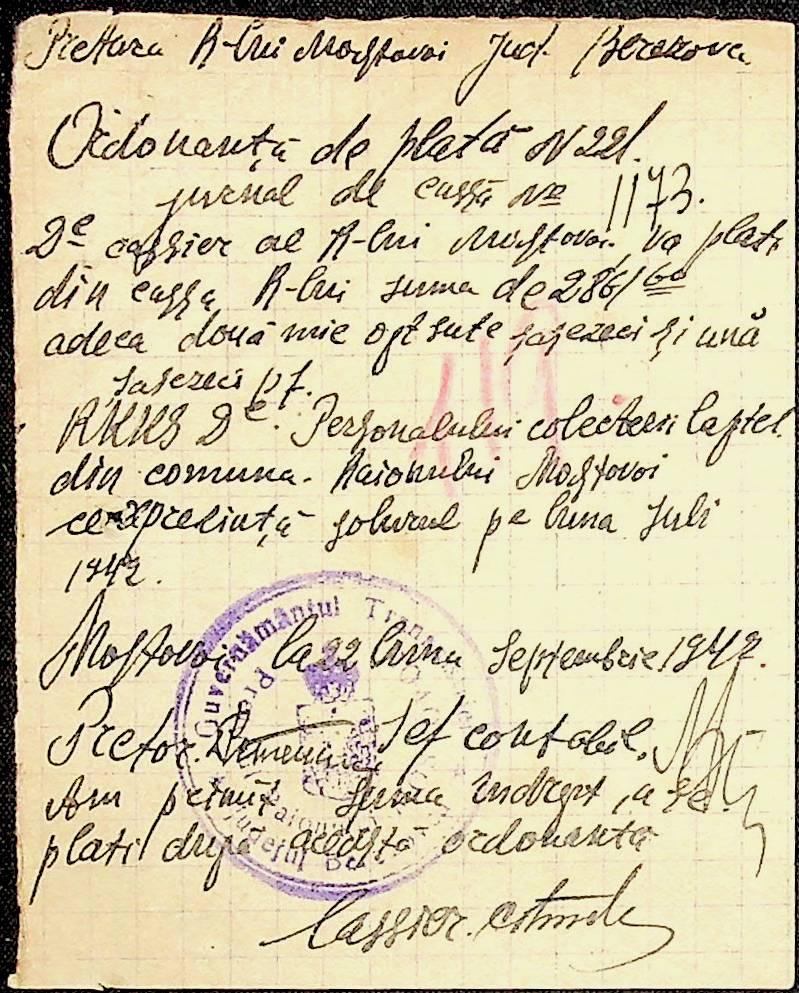 Pretura R-lui Mostovoi Jud. Berezova.
Ordonanță de plată N 221.
jurnal de cassă No 1173.
De cassier al R-lui Mostovoi, va plati
din cassa R-lui suma de 2861/60
adeca două mie opt sute șasezeci și ună
șasezeci pf.
RKKS De. Personalului colecterii laptel.
din comuna. Raionului Mostovoi
ce prezintă solurul pe luna Juli
1942.
Mostovoi la 22 luna Septembrie 1942.
Pretor. Șef contabil,
Am primit suma indrept, a se
plati după această ordonanta
Cassier.
Guvernământul Trans
Județul Be